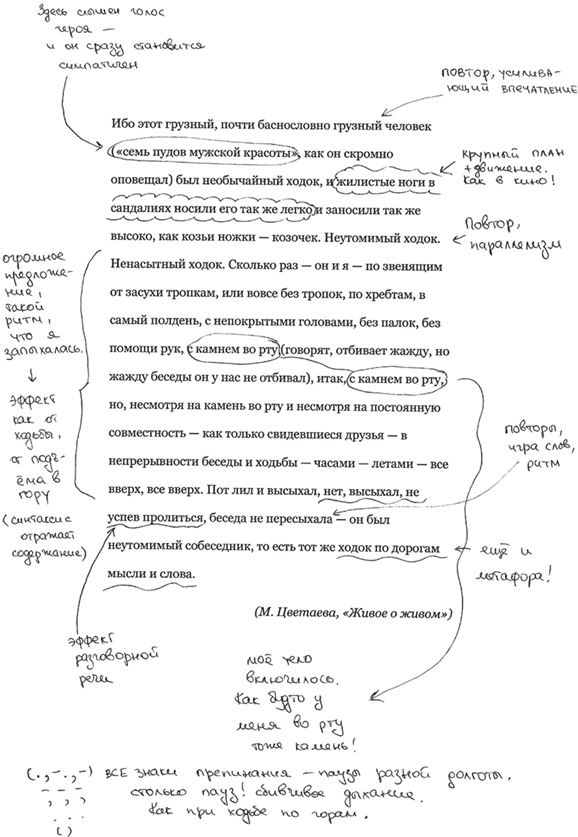 Здесь слышен голос
героя —
и он сразу становится
симпатичен
повтор, усилива-
ющий впечатление
Ибо этот грузный, почти баснословно грузный человек
(«семь пудов мужской красоты», как он скромно
оповещал) был необычайный ходок, и жилистые ноги в
сандалиях носили его так же легко и заносили так же
высоко, как козьи ножки — козочек. Неутомимый ходок.
Ненасытный ходок. Сколько раз — он и я — по звенящим
от засухи тропкам, или вовсе без тропок, по хребтам, в
самый полдень, с непокрытыми головами, без палок, без
помощи рук, с камнем во рту (говорят, отбивает жажду, но
жажду беседы он у нас не отбивал), итак, с камнем во рту,
но, несмотря на камень во рту и несмотря на постоянную
совместность — как только свидевшиеся друзья — в
непрерывности беседы и ходьбы — часами — летами — все
вверх, все вверх. Пот лил и высыхал, нет, высыхал, не
успев пролиться, беседа не пересыхала — он был
неутомимый собеседник, то есть тот же ходок по дорогам
мысли и слова.
(М. Цветаева, «Живое о живом»)
крупный план
+движение.
Как в кино!
Повтор,
параллелизм
огромное
предложе-
ние,
такой
ритм,
что я
запыхалась.
эффект
как от
ходьбы,
от подъ-
ёма в
гору
(синтаксис
отражает
содержание)
повторы,
игра слов,
ритм
ещё и
метафора!
эффект
разговорной
речи
моё тело
включилось.
Как будто у
меня во рту
тоже камень!
(.,–.,–) все знаки препинания – паузы разной долготы.
– – – столько пауз! сбивчивое дыхание.
, , , Как при ходьбе по горам.
. . .
( )